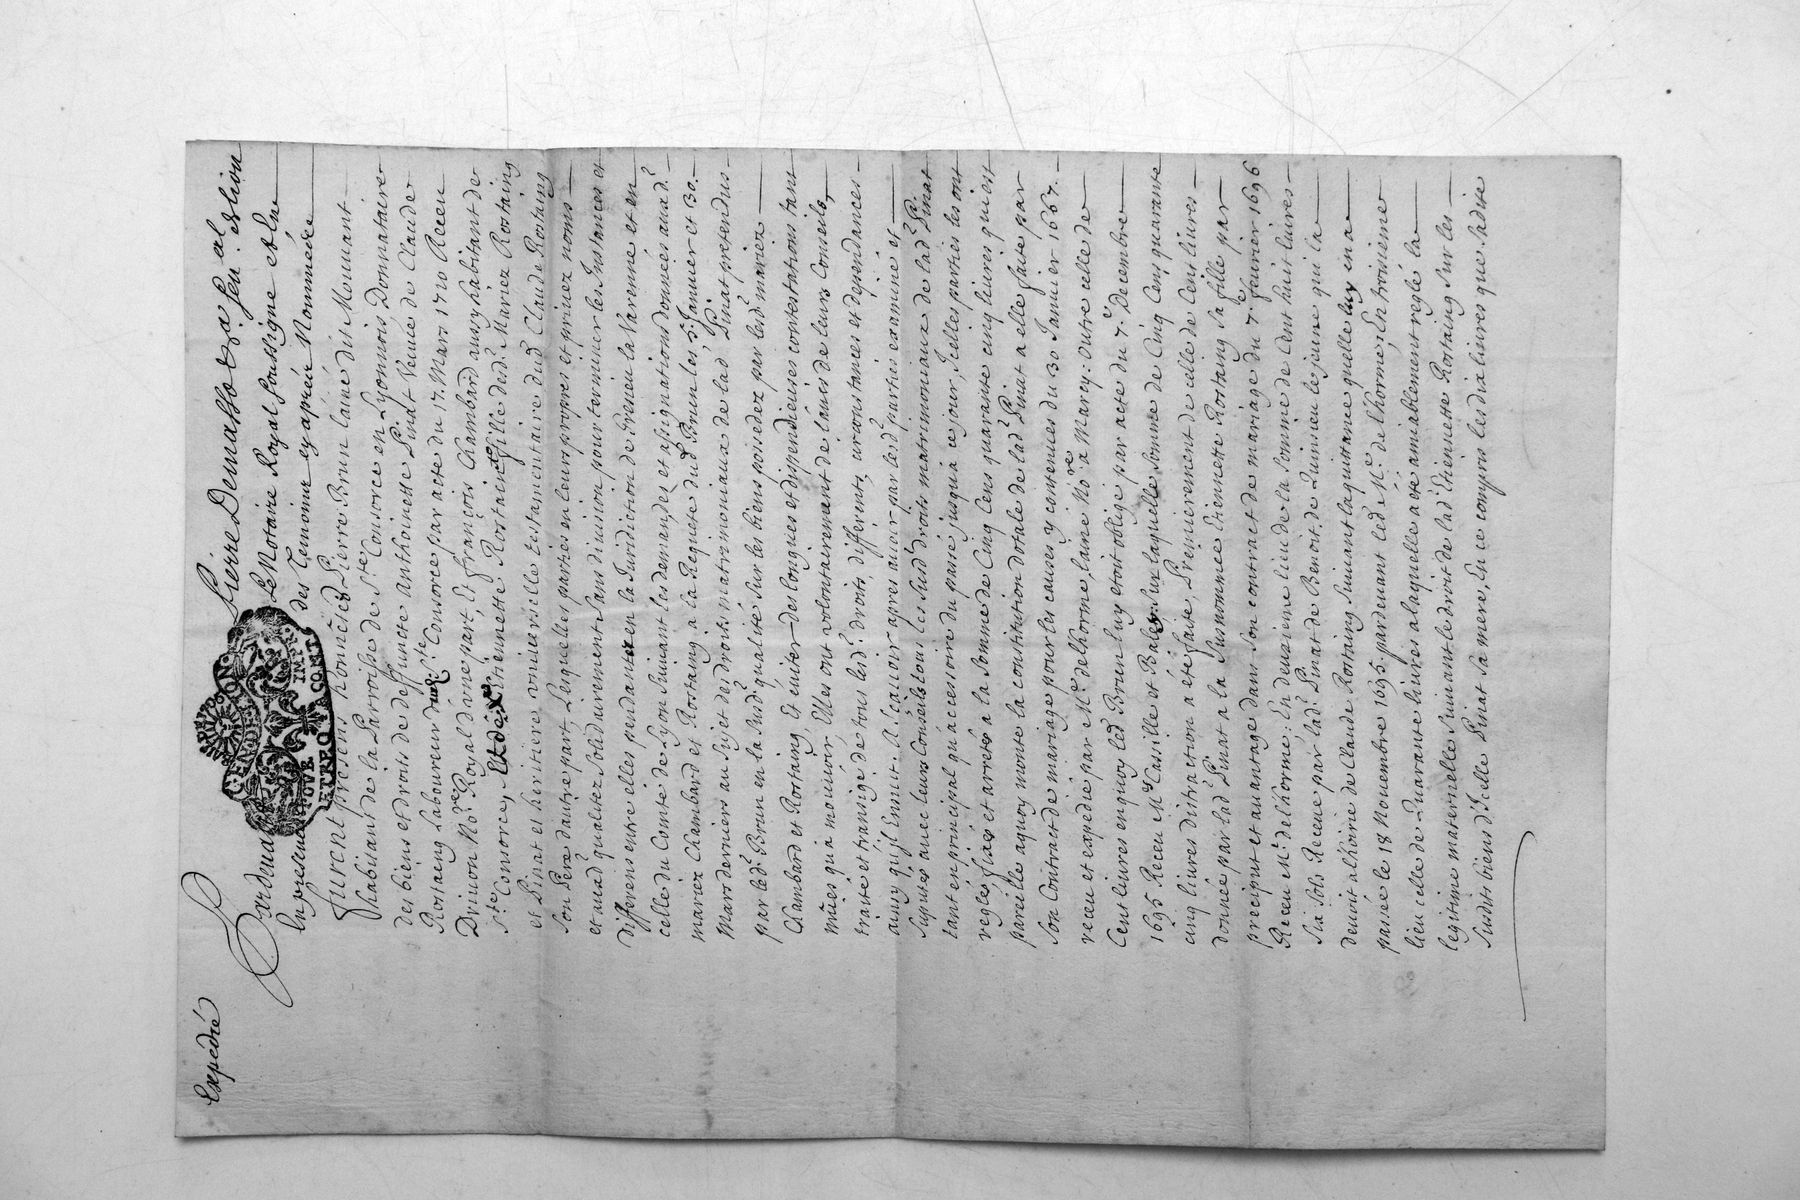 Expedié
Pardevant Pierre Demasso Esr. Sen.al esLion
Le Notaire Royal soussigné et En
En presence des Temoins cyaprés Nommés
Furent presens honnêtes Pierre Brun lainé dit Mouvant
habitant de la Parroisse de Ste Consorce en Lyonnois Donnataire
des biens et droits de deffuncte Anthoinette Pinat Veuve de Claude
Rostaing Laboureur dud. Ste Consorce par acte du 17. Mars 1720 Receu
Drivon Nore Royal dúne part, Et françois Chambard aussy habitant de
Ste Consorce, Etthiennette Rostaing fille desd. Mariez Rostaing
et Pinat et heritiere universelle testamentaire dud Claude Rostaing
son Pere dautre part, Lesquelles parties en leurs propres et privez noms
et ausd qualitez Solidairement Sans division pour terminer les Instances et
differens entre elles pendantes en la Juridiction de Grezieu la Varenne et en
celle du Comté de Lyon Suivant les demandes et assignations données auxd.
mariez Chambard et Rostaing a la Requete dud Brun les 5. Janvier et 30.
Mars derniers au Sujet des droits matrimoniaux de lad Pinat pretendus
par led. Brun en la Susd. qualité Sur les biens possedez par lesd mariez
Chambard et Rostaing, Et éviter des longues et dispendieuses contestations tant
mües qu'a mouvoir, Elles ont volontairement de lávis de leurs Conseils,
traité et transigé de tous lesd. droits, differents, circonstances et dependances
ainsy qu'il Sensuit. A Scavoir apres avoir par lesd parties examiné et
Suputés avec leurs Conseils tous les Susd droits matrimoniaux de lad Pinat
tant en principal qu'accessoire du passé jusqu'a ce jour, Icelles parties les ont
reglés fixés et arretés a la Somme de Cinq Cens quarante cinq livres qui est
pareille a quoy monte la constitution dotale de lad Pinat a elle faite par
Son Contract de mariage pour les causes y contenues du 30 Janvier 1667.
receu et expedié par Me. delhorme, lainé Nore a Marcy. Outre celle de
Cent livres en quoy led Brun luy etoit obligé par acte du 7. Decembre
1695 Receu Me Cassille et Sur laquelle Somme de Cinq Cens quarante
cinq livres distraction a été faite, Premierement de celle de Cent livres
donnée par lad Pinat a la Susnommée Etiennette Rostaing Sa fille par
preciput et avantage dans Son contract de mariage du 7e fevrier 1696
Receu Me. delhorme; En deuxieme lieu de la Somme de Cent huit livres
Six Sols Receue par lad. Pinat de Benoit de Quinsieu le jeune qui la
devoit a lhoirie de Claude Rostaing Suivant la quittance quelle luy en a
passée le 18 Novembre 1695. pardevant led Me. de lhorme; En troisieme
lieu celle de Quarante livres a laquelle a été amiablement reglé la
legitime maternelle Suivant le droit de lad Etiennette Rostaing Sur les
Susdits biens d'Icelle Pinat Sa mere, En ce compris les dix livres que ladite